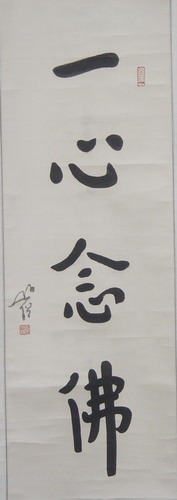 一心念佛